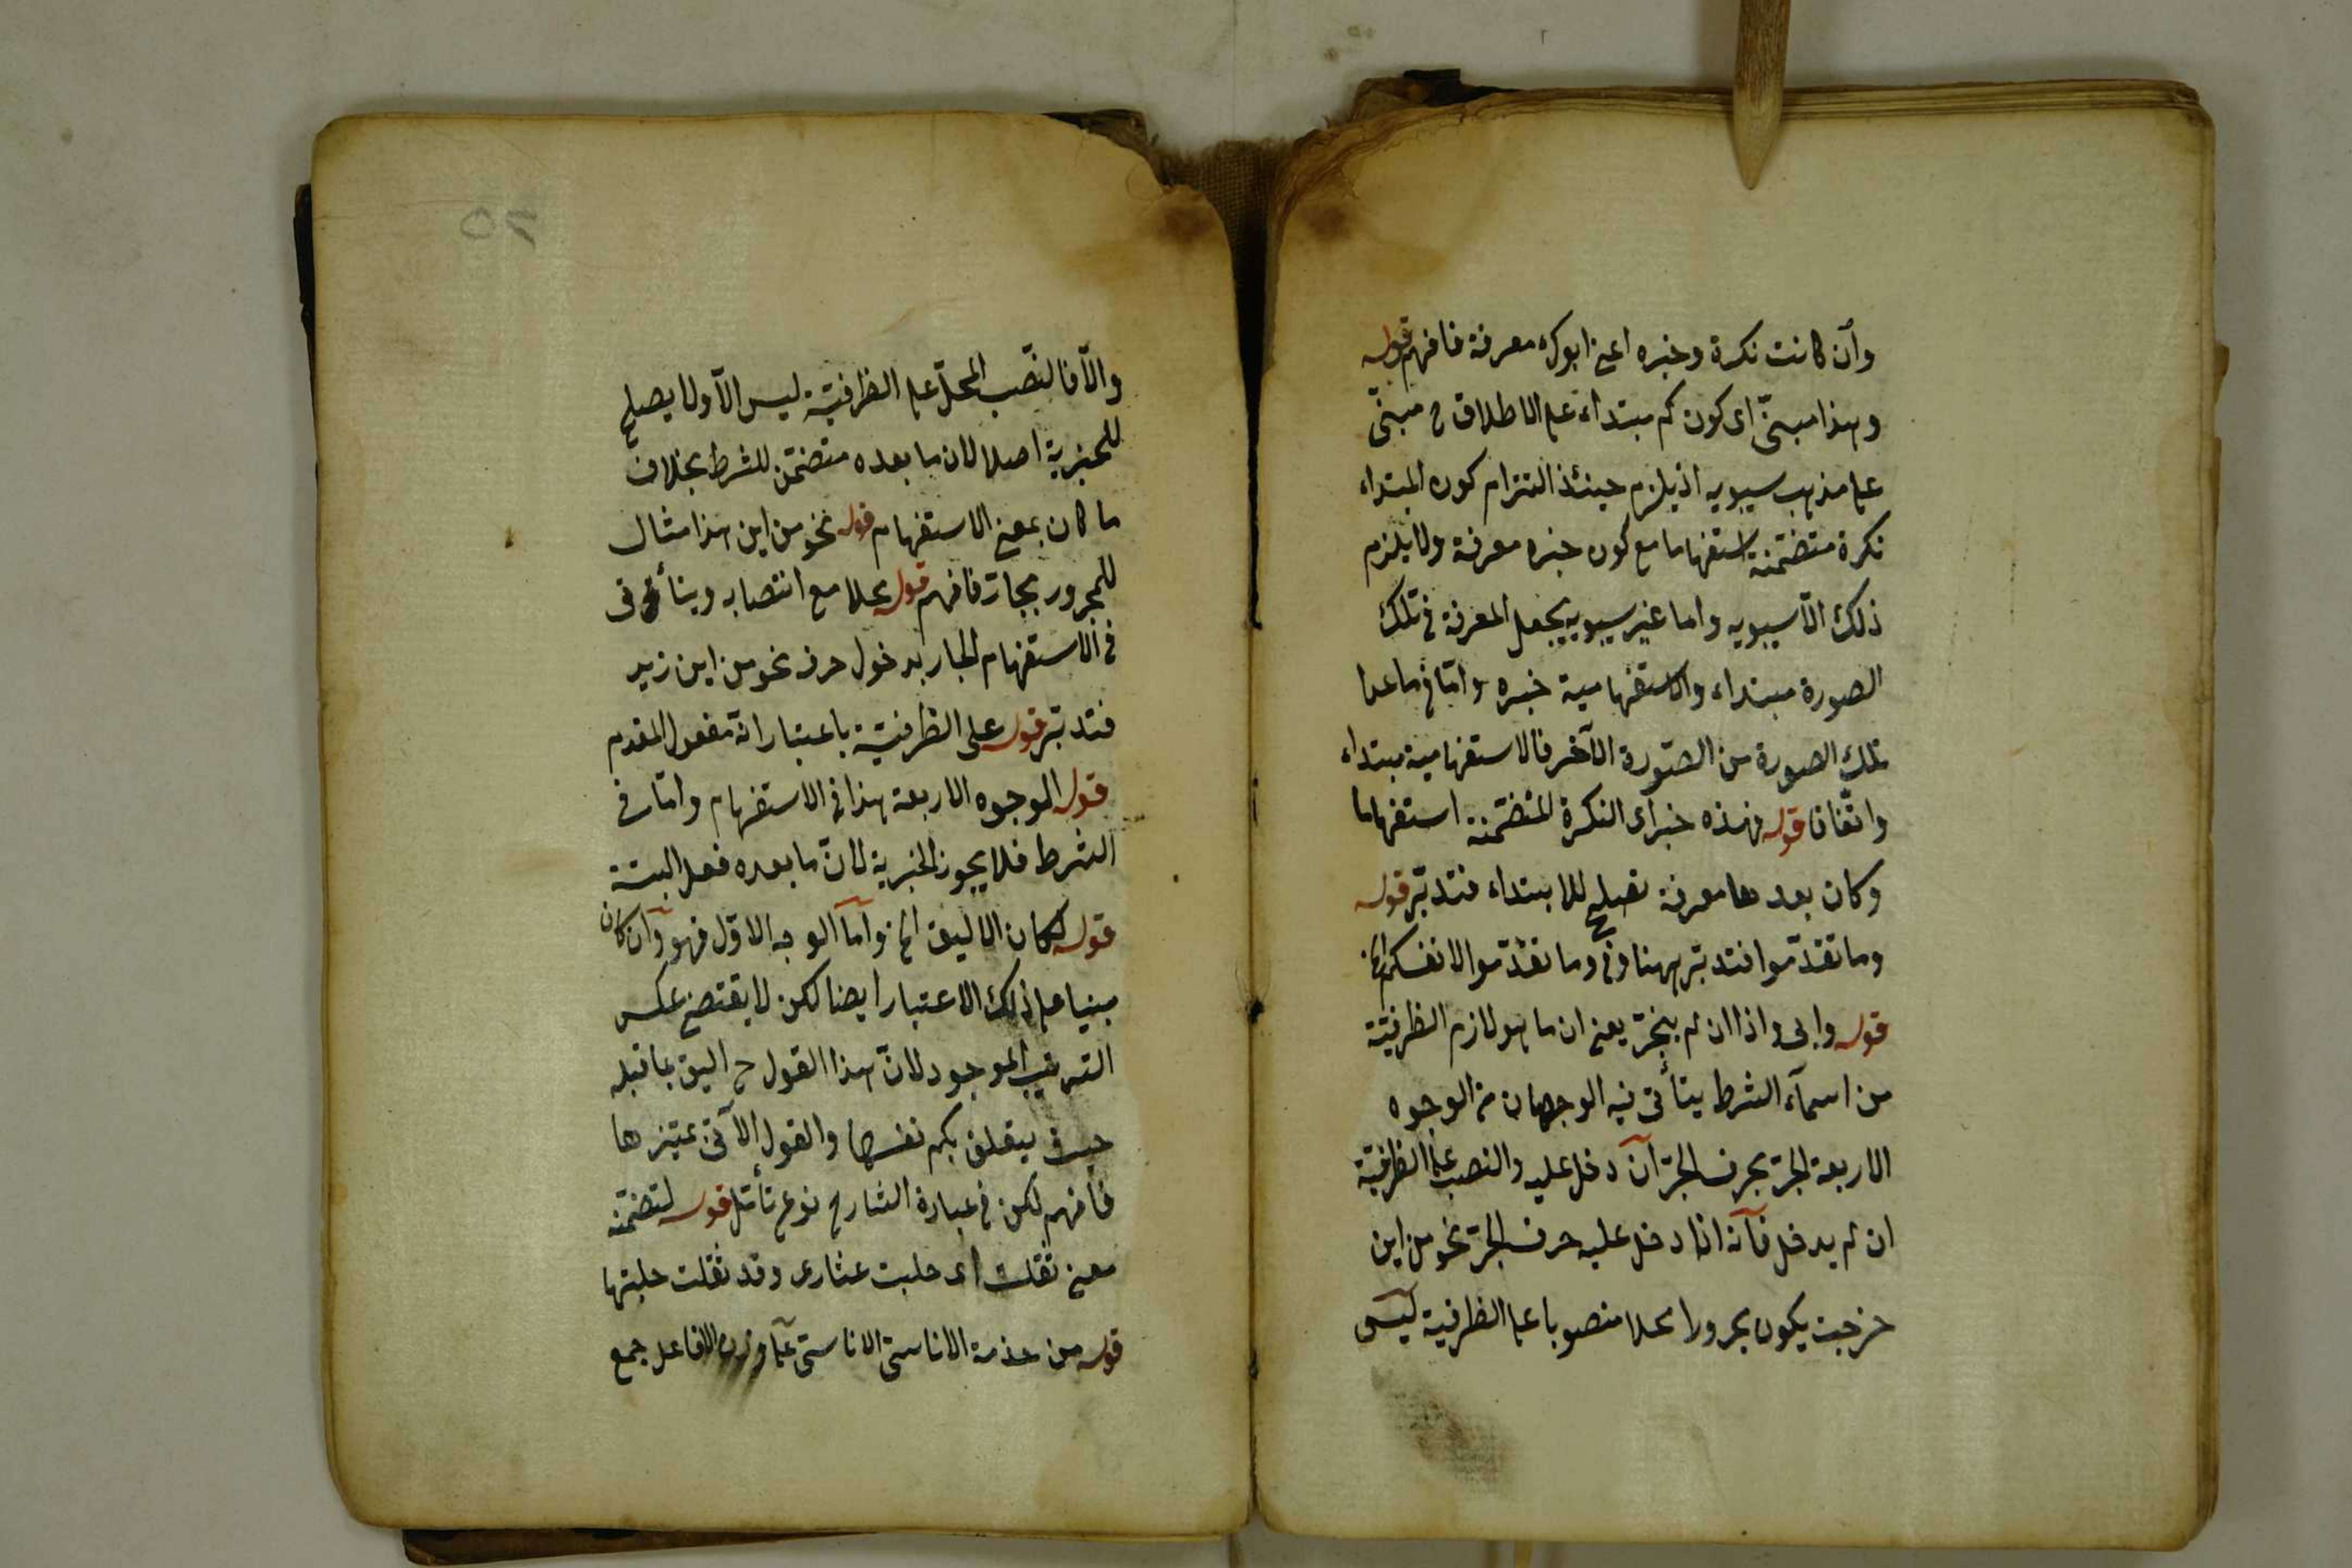 وأن كانت نكرة وخبره اعنى ابوك معرفة فافهم قوله
وهذا مبنىّ اى كون كم مبتداء على الاطلاق ح مبنىّ
على مذهب سيبويه اذ يلزم حينئذ التزام كون المبتداء
نكرة متضمّنة استفهاما مع كون خبره معرفة ولا يلزم
ذلك الّا سيبويه واما غير سيبويه يجعل المعرفة فى تلك
الصورة مبتداء والاستفهامية خبره وامّا فى ما عدا
تلك الصورة من الصّورة الآخر فالاستفهامية مبتداء
واتّفاقا قوله فهذه خبر اى النكرة المتضمّنة استفهاما
وكان بعدها معرفة تصلح للابتداء فتدبّر قوله
وما تقدّموا فتدبّر ههنا وفى وما تقدّموا لانفسكم الخ
قوله وانى واذا ان لم ينجرّ يعنى ان ما هو لازم الظرفيّة
من اسمآء الشرط يتأتى فيه الوجهان من الوجوه
الاربعة الجرّ بحرف الجرّ آن دخل عليه والنصب على الظرفيّة
ان لم يدخل فآنه اذا دخل عليه حرف الجرّ نحو من اين
خرجت يكون مجرورا محلا منصوبا على الظرفية ليس
٦٥
والّا فالنّصب المحلّ على الظرفيّة ليس الّا ولا يصلح
للخبرية اصلا لان ما بعده متضمّن للشرط بخلاف
ما كان بمعنى الاستفهام قوله نحو من اين هذا مثال
للمجرور بجارّ فافهم قوله محلا مع انتصابه ويتأتى فى
فى الاستفهام الجار بدخول حرف نحو من اين زيد
فتدبّر قوله على الظرفيّة باعتبار انّه مفعول المقدم
قوله الوجوه الاربعة هذا فى الاستفهام وامّا فى
الشرط فلا يجوز الخبرية لانّ ما بعده فعل البتة
قوله لكان الاليق الخ وآمآ الوجه الاوّل فهو وآن كان
مبنيا على ذلك الاعتبار ايضا لكن لا يقتضى عكس
الترتيب الموجود لانّ هذا القول ح اليق بما قبله
حيث يتعلق بكم نفسها والقول الآتى بمميّزها
فافهم لكن فى عبارة الشارح نوع تأمّل قوله لتضمّنه
معنى ثقلت اى حلبت عشارى وقد ثقلت حلبتها
قوله من الاناسىّ الاناسىّ على وزن الافاعل جمع